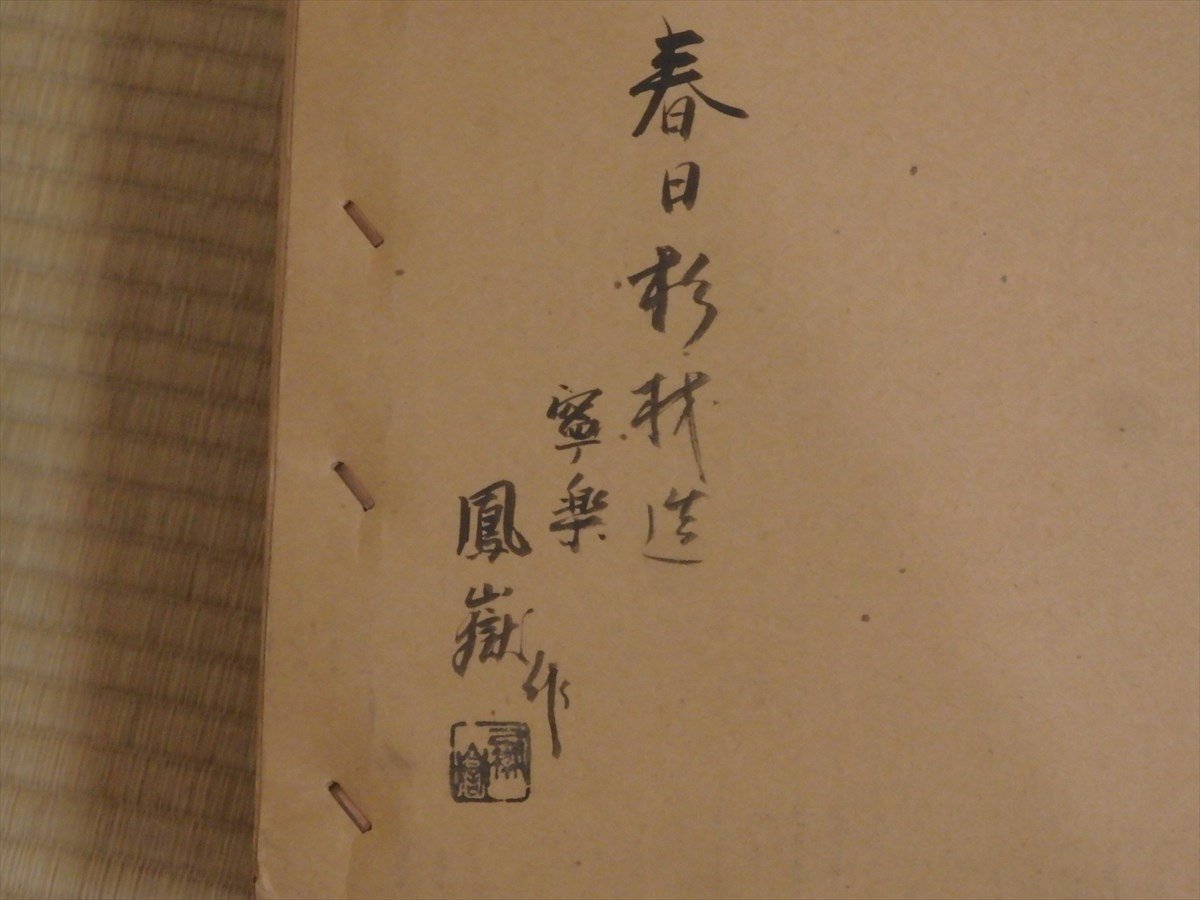 春日杉材造
寧楽
鳳嶽作